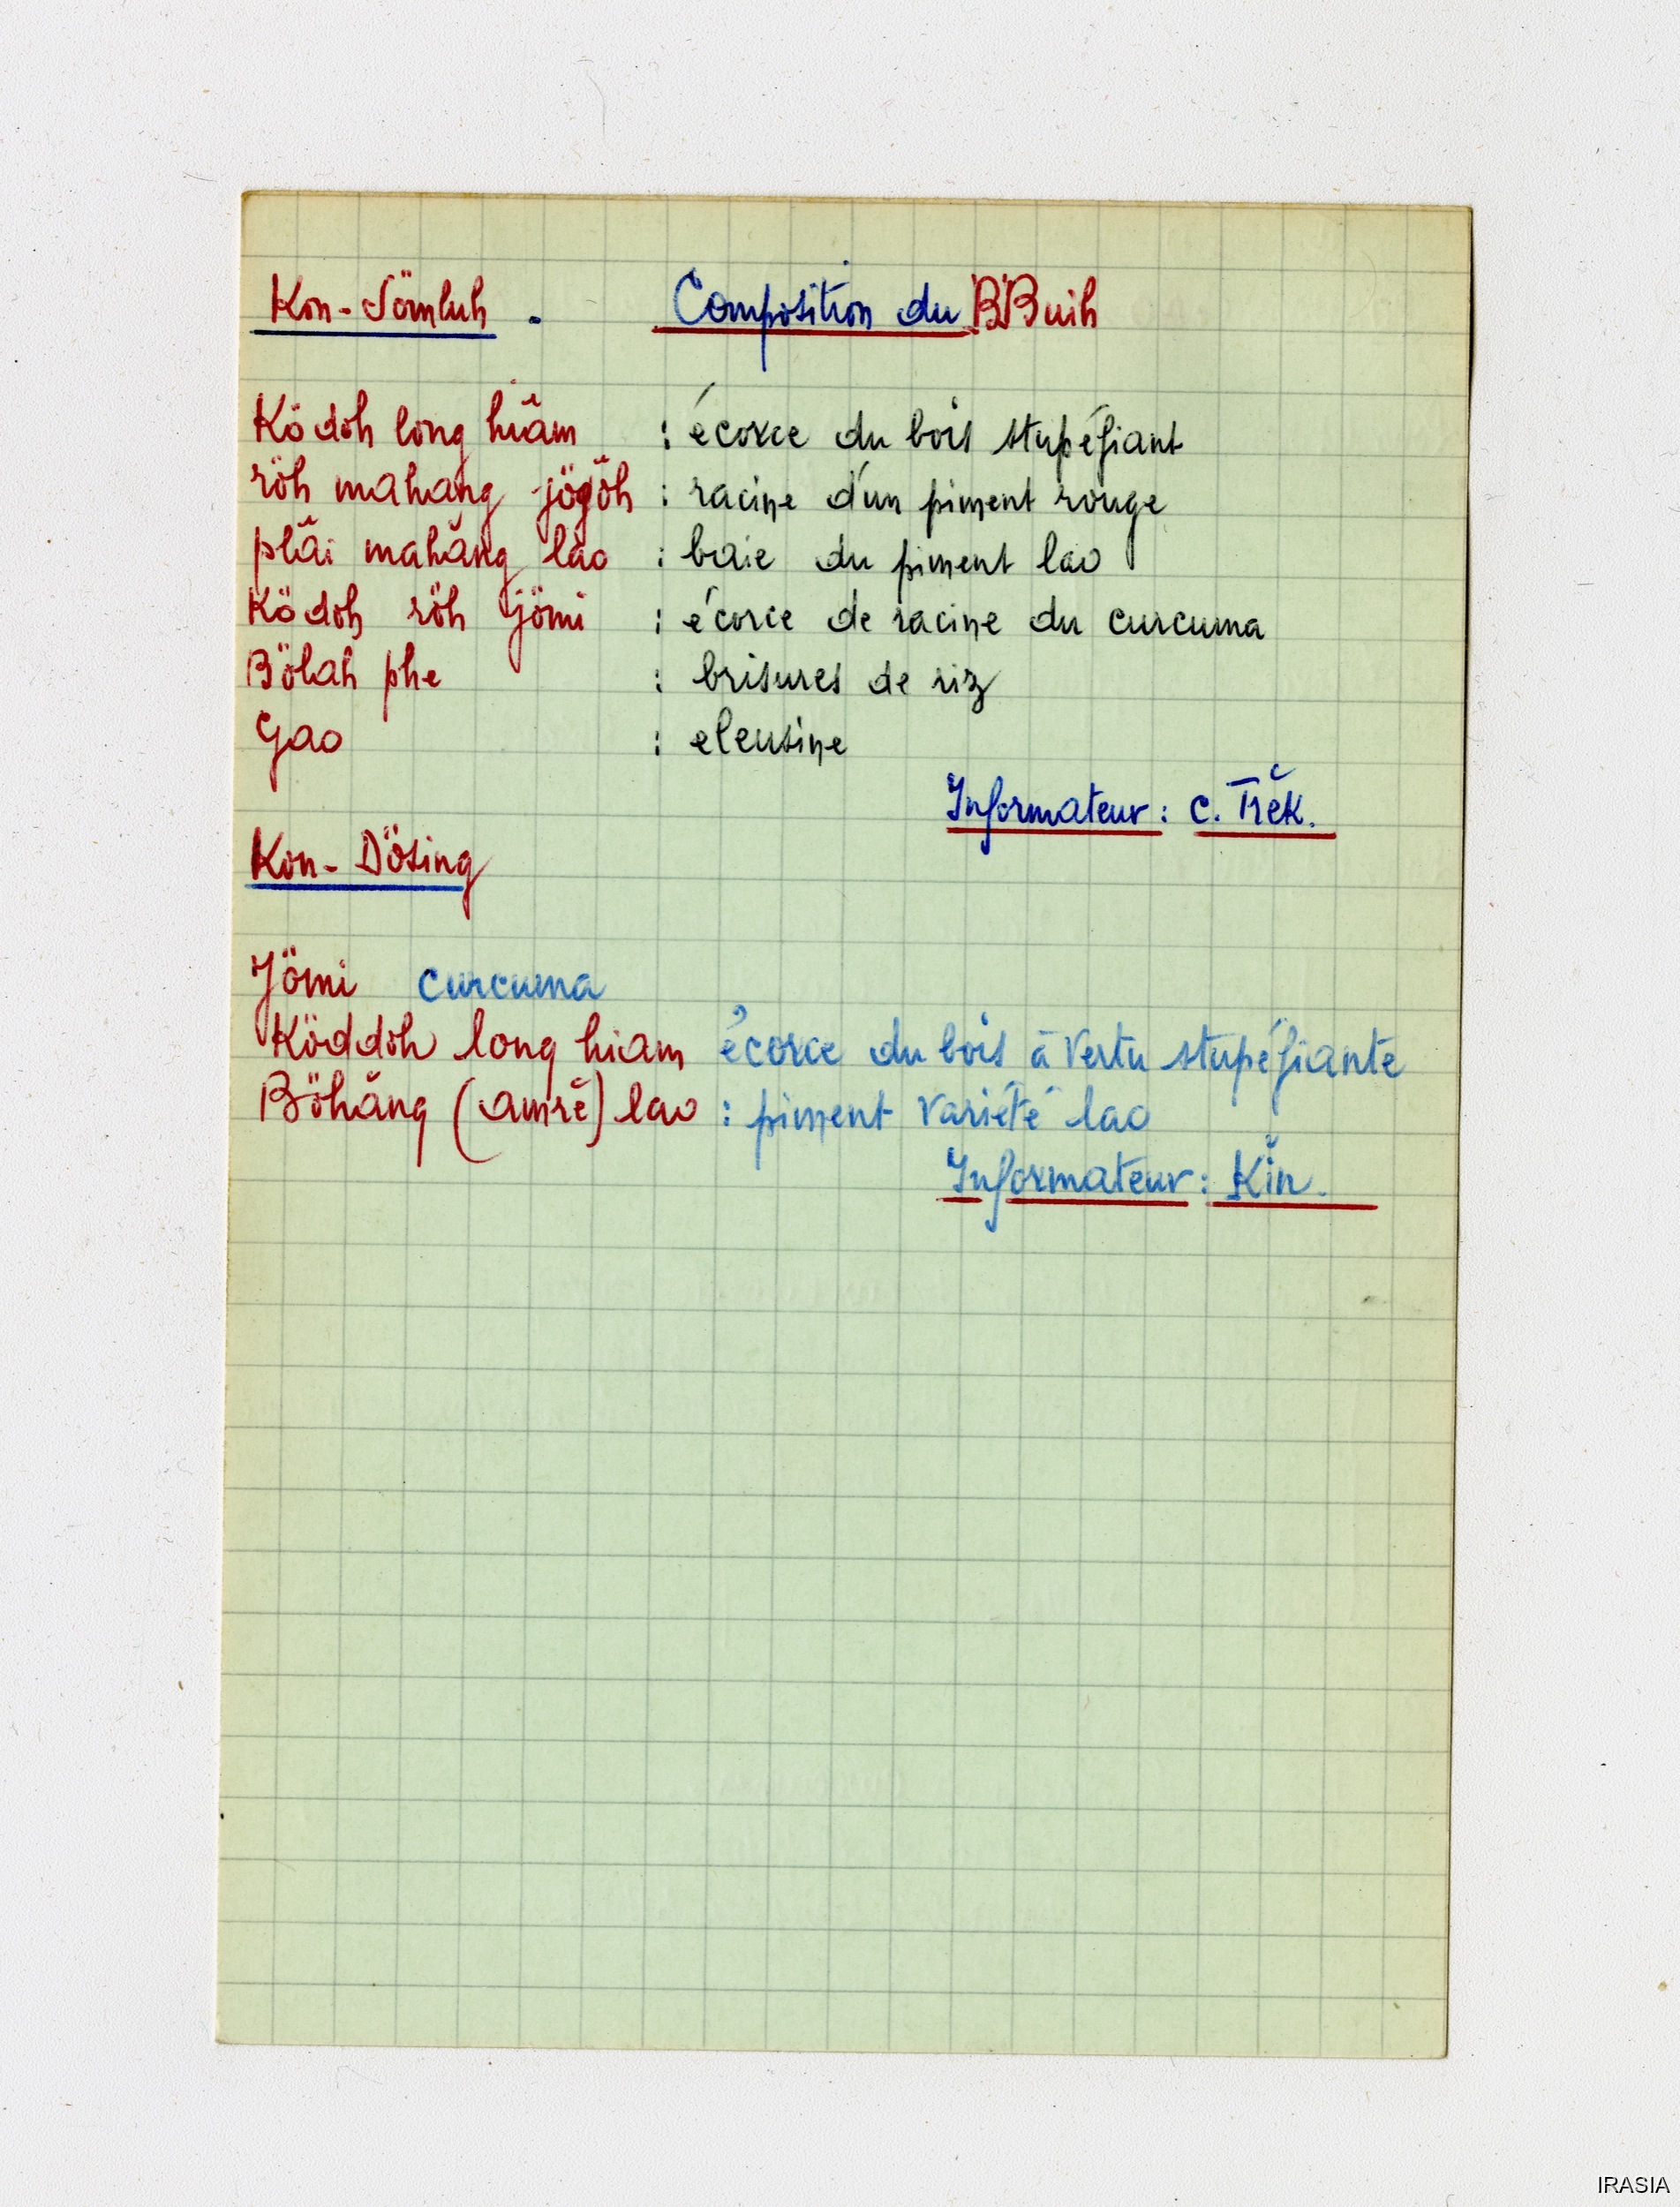 Kon-Sömluh . Composition du BBuih
Ködöh long hiăm : écorce du bois stupéfiant
röh mahang jögŏh : racine d'un piment rouge
plăi mahăng lao : baie du piment lao
Ködöh röh jömi : écorce de racine du curcuma
Bölah phe : brisures de riz
Gao : eleusine
Informateur : C. Trĕk.
Kon-Dösing
Jömi curcuma
Köddöh long hiam écorce du bois à vertu stupéfiante
Böhăng (amrĕ) lao : piment variété lao
Informateur : Kĭn.
IRASIA